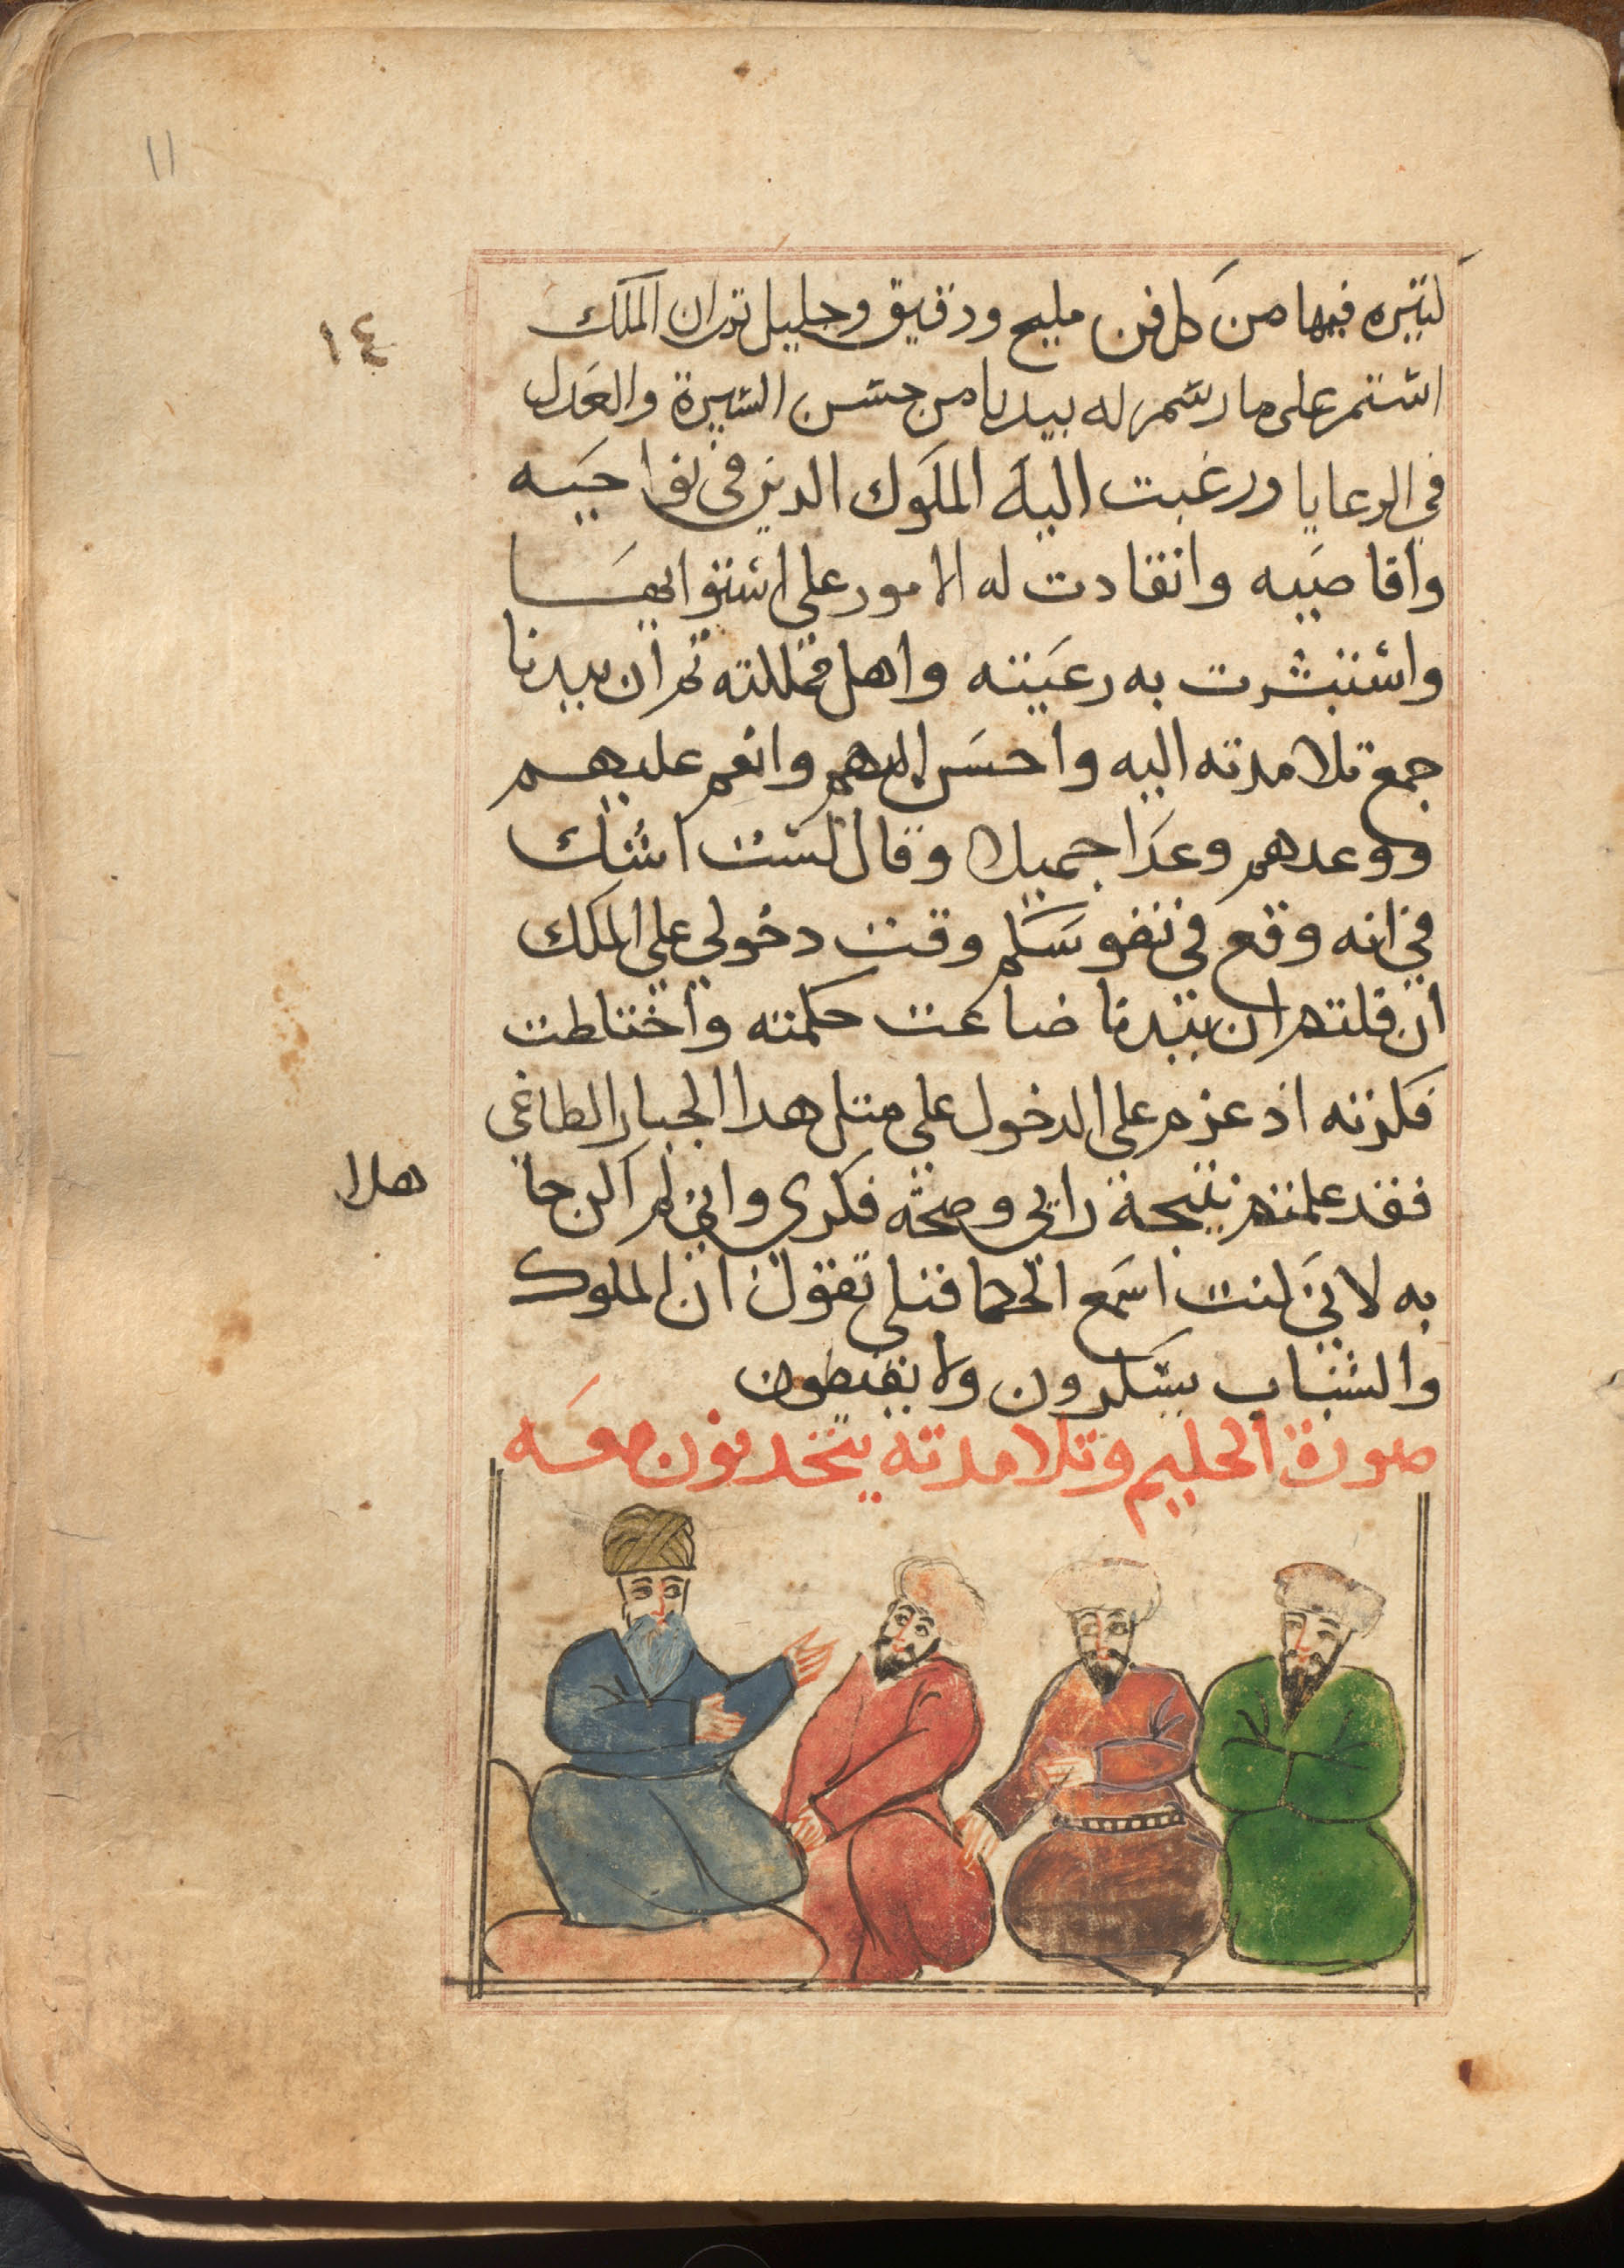 11
١٤
كتيره فيها من كل فن مليح ودقيق وجليل ثم ان الملك
استمر على ما رسم له بيدبا من حسن السيرة والعدل
في الرعايا ورغبت اليه الملوك الدين في نواحيه
واقاصيه وانقادت له الامور على استوايها
واستبشرت به رعيته واهل مملكته ثم ان بيدبا
جمع تلامدته اليه واحسن اليهم وانعم عليهم
ووعدهم وعدا جميلا وقال لست اشك
في انه وقع في نفوسكم وقت دخولي علي الملك
ان قلتم ان بيدبا ضاعت حكمته واختلطت
فكرته اذ عزم على الدخول على متل هدا الجبار الطاغي
فقد علمتم نتيجة رايي وصحة فكري واني لم اكن جا
هلا
به لاني كنت اسمع الحكما قبلي تقول ان الملوك
والشباب يسكرون ولا يفيقون
صورة الحكيم وتلامدته يتحدتون معه